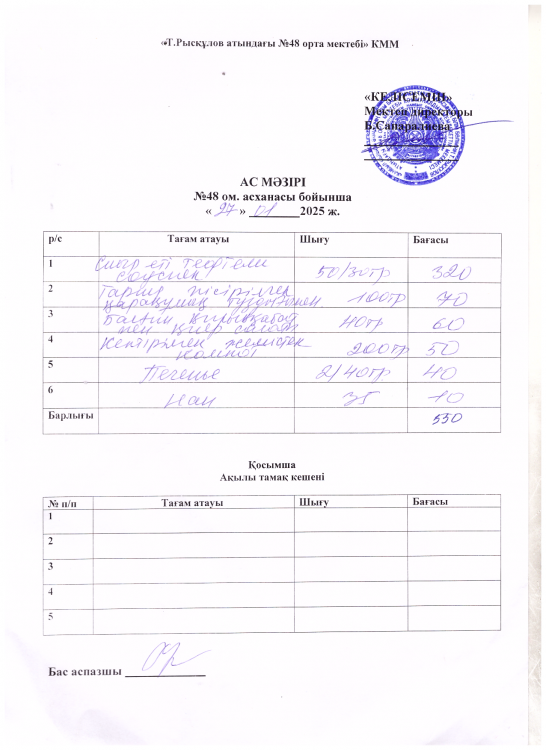 «Т.Рысқұлов атындағы №48 орта мектебі» КММ
«КЕЛІСЕМІН»
Мектеп директоры
АС МӘЗІРІ
№48 ом. асханасы бойынша
« 27 » 01 2025 ж.
р/с Тағам атауы Шығу Бағасы
1 Сиыр еті тефтели соуспен 50/30гр 320
2 Тарыц пісірілген қарақұмық тұздықпен 100гр 70
3 Балғын қырыққабат пен қияр салат 40гр 60
4 Кептірілген жемістен компот 200гр 50
5 Печенье 2/40гр 40
6 Нан 35 10
Барлығы 550
Қосымша
Ақылы тамақ кешені
№ п/п Тағам атауы Шығу Бағасы
1
2
3
4
5
Бас аспазшы